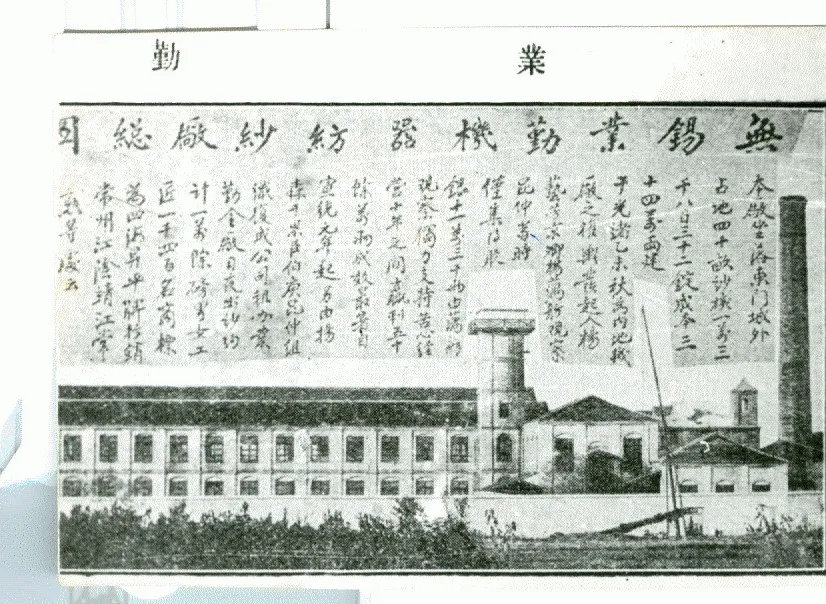 業勤
無錫業勤機器紡紗廠總
本廠坐落東門城外
占地四十畝紗機一萬三
千八百三十二錠成本三
十四萬兩建
于光緒乙未秋為內地機
廠之權輿發起人楊
藝芳京卿楊藕舫觀察
昆仲當時
僅集得股
銀十一萬三千兩由藕舫
觀察獨力支持苦心經
營十年之間贏利五十
餘萬兩成效最著自
宣統元年起另由楊
森千京臣伯庚昆仲組
織復成公司租辦業
勤全廠日夜出紗約
計一萬餘磅男女工
匠一千四百名商標
為四海昇平銷
常州江陰靖江常
熟等處云